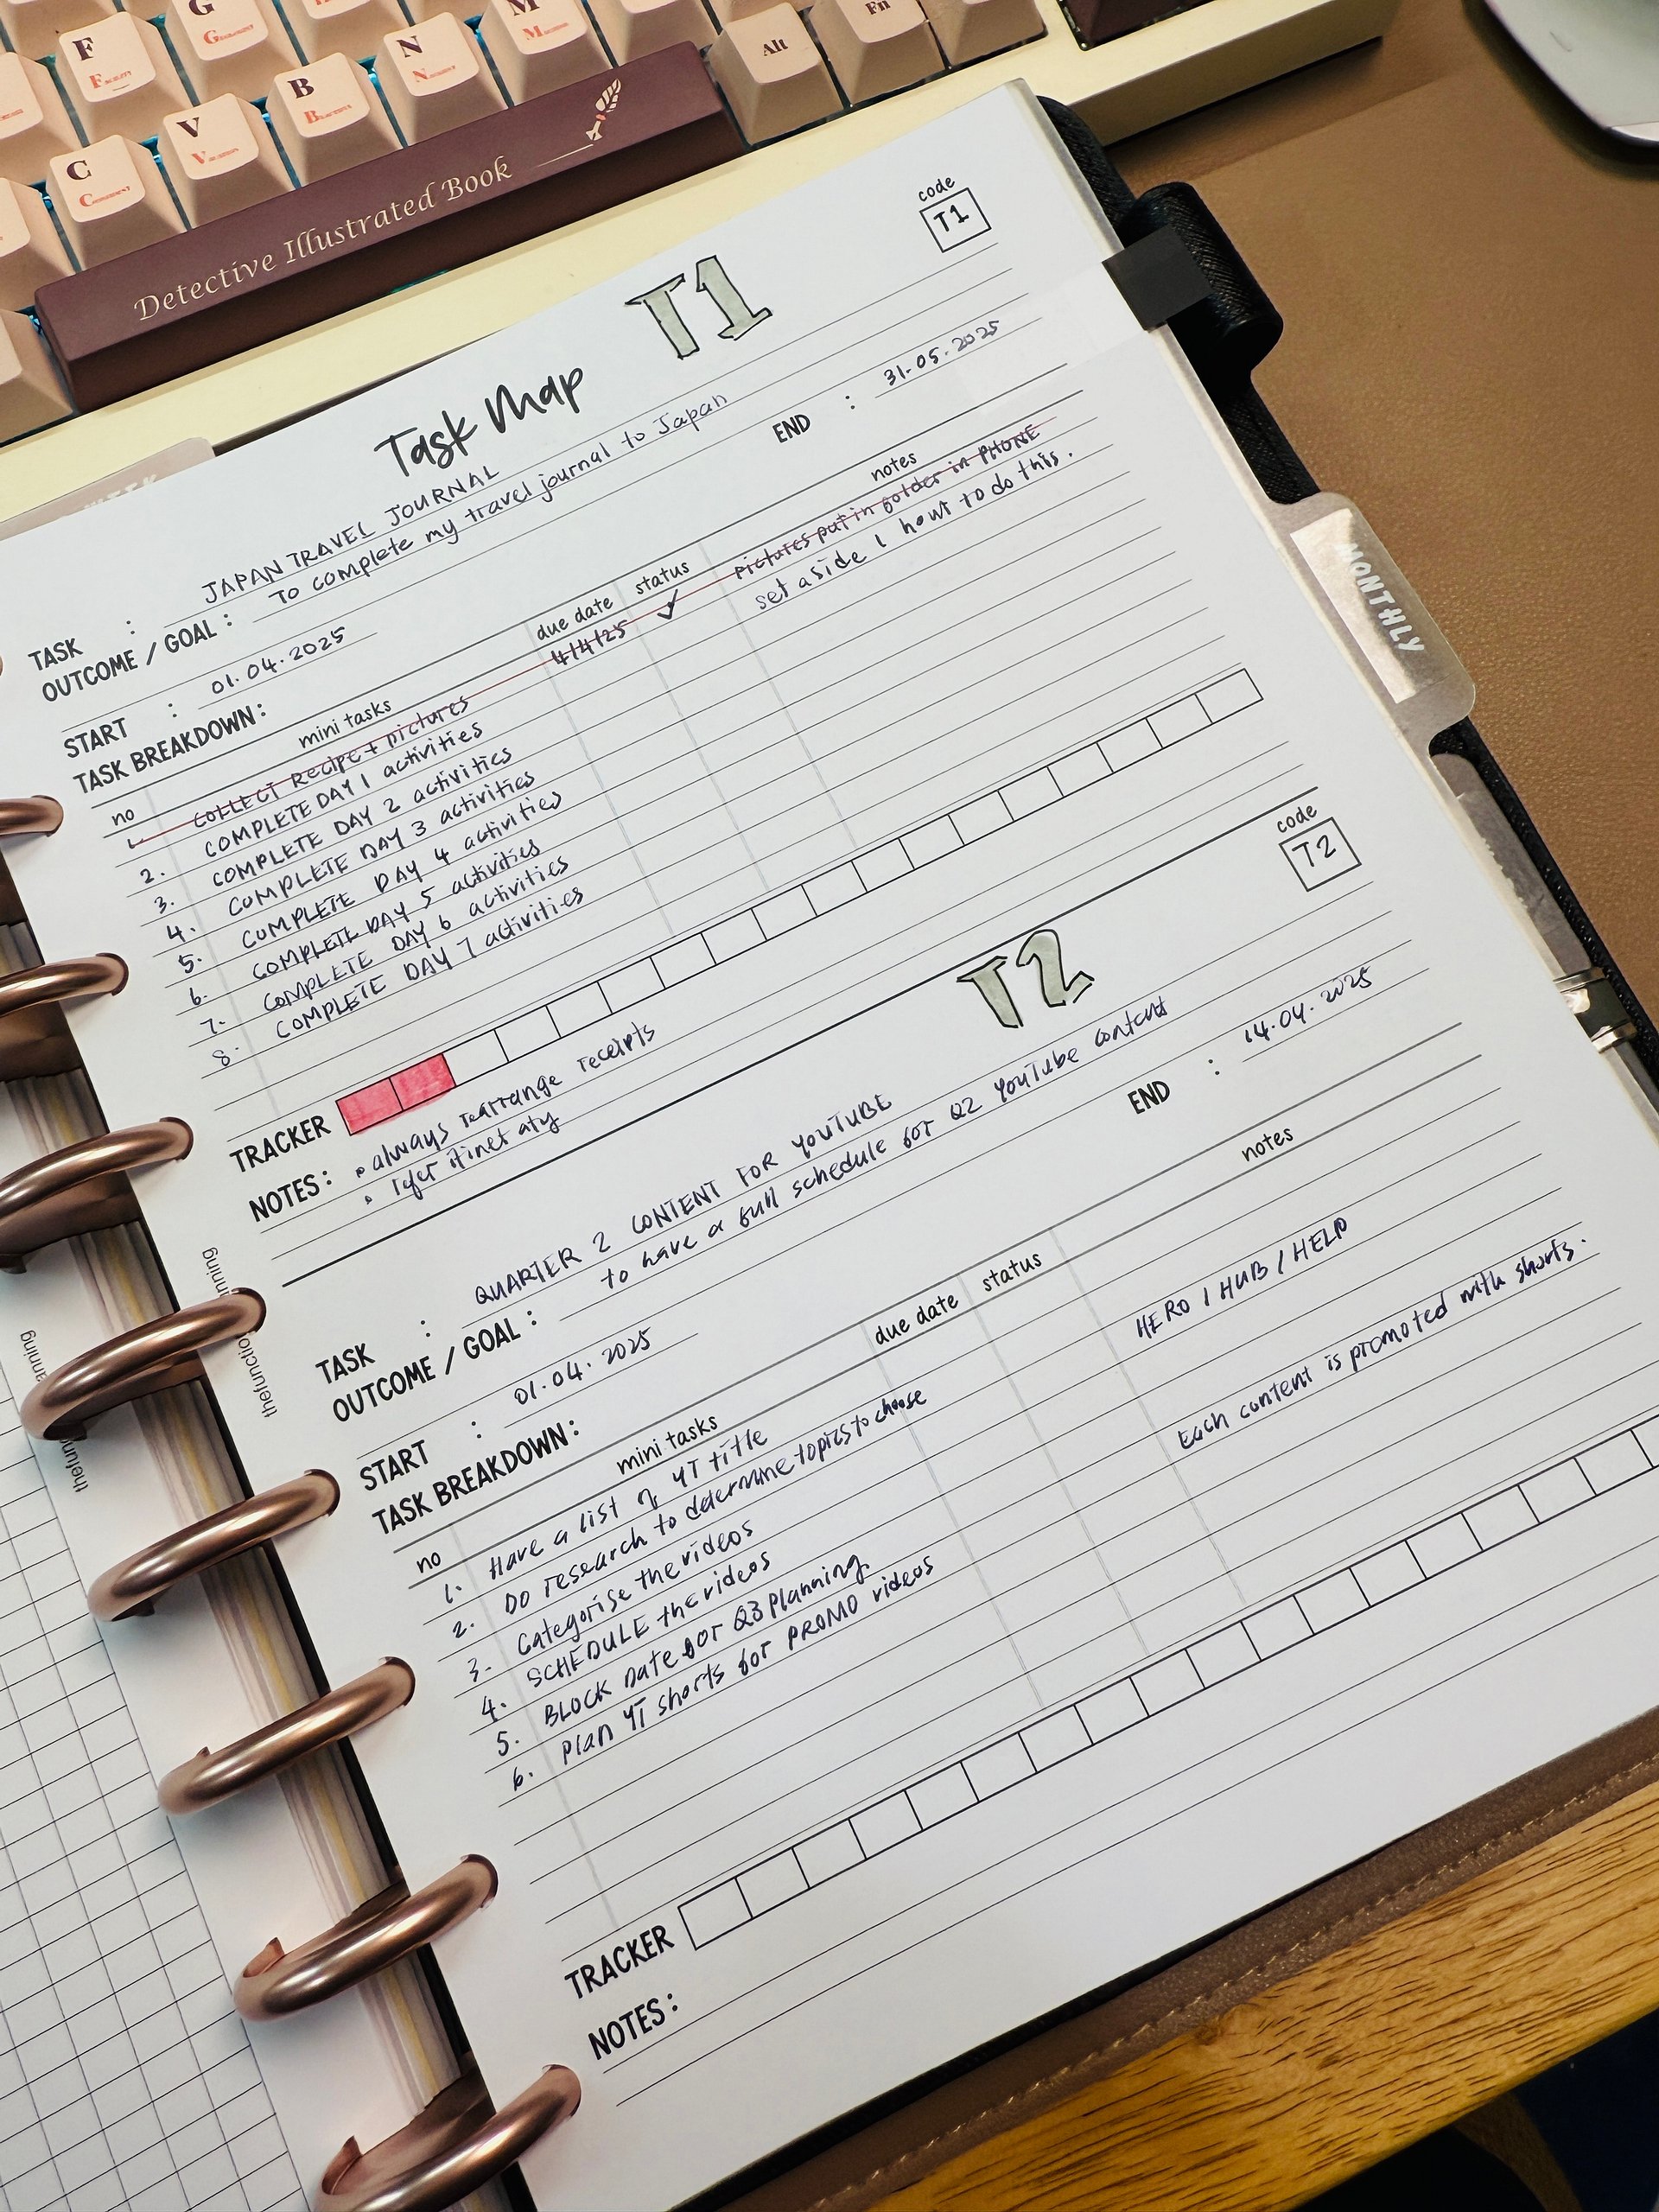 F
G
M
Alt
Fn
N
B
V
C
Detective Illustrated Book
code
T1
T1
Task Map
TASK : JAPAN TRAVEL JOURNAL
OUTCOME / GOAL : TO complete my travel journal to Japan
START : 01.04.2025 END : 31.05.2025
TASK BREAKDOWN:
no mini tasks due date status notes
1. COLLECT Recipe + pictures 4/4/25 ✓ pictures put in folder in PHONE
2. COMPLETE DAY 1 activities set aside 1 hour to do this.
3. COMPLETE DAY 2 activities
4. COMPLETE DAY 3 activities
5. COMPLETE DAY 4 activities
6. COMPLETE DAY 5 activities
7. COMPLETE DAY 6 activities
8. COMPLETE DAY 7 activities
TRACKER
NOTES: • always rearrange receipts
• refer
MONTHLY
code
T2
T2
TASK : QUARTER 2 CONTENT FOR YOUTUBE
OUTCOME / GOAL : to have a full schedule for Q2 YouTube content
START : 01.04.2025 END : 14.04.2025
TASK BREAKDOWN:
no mini tasks due date status notes
1. Have a list of YT title
2. Do research to determine topics to choose
3. Categorise the videos HERO / HUB / HELP
4. SCHEDULE the videos
5. BLOCK Date for Q3 Planning
6. Plan YT shorts for PROMO videos Each content is promoted with shorts.
TRACKER
NOTES: